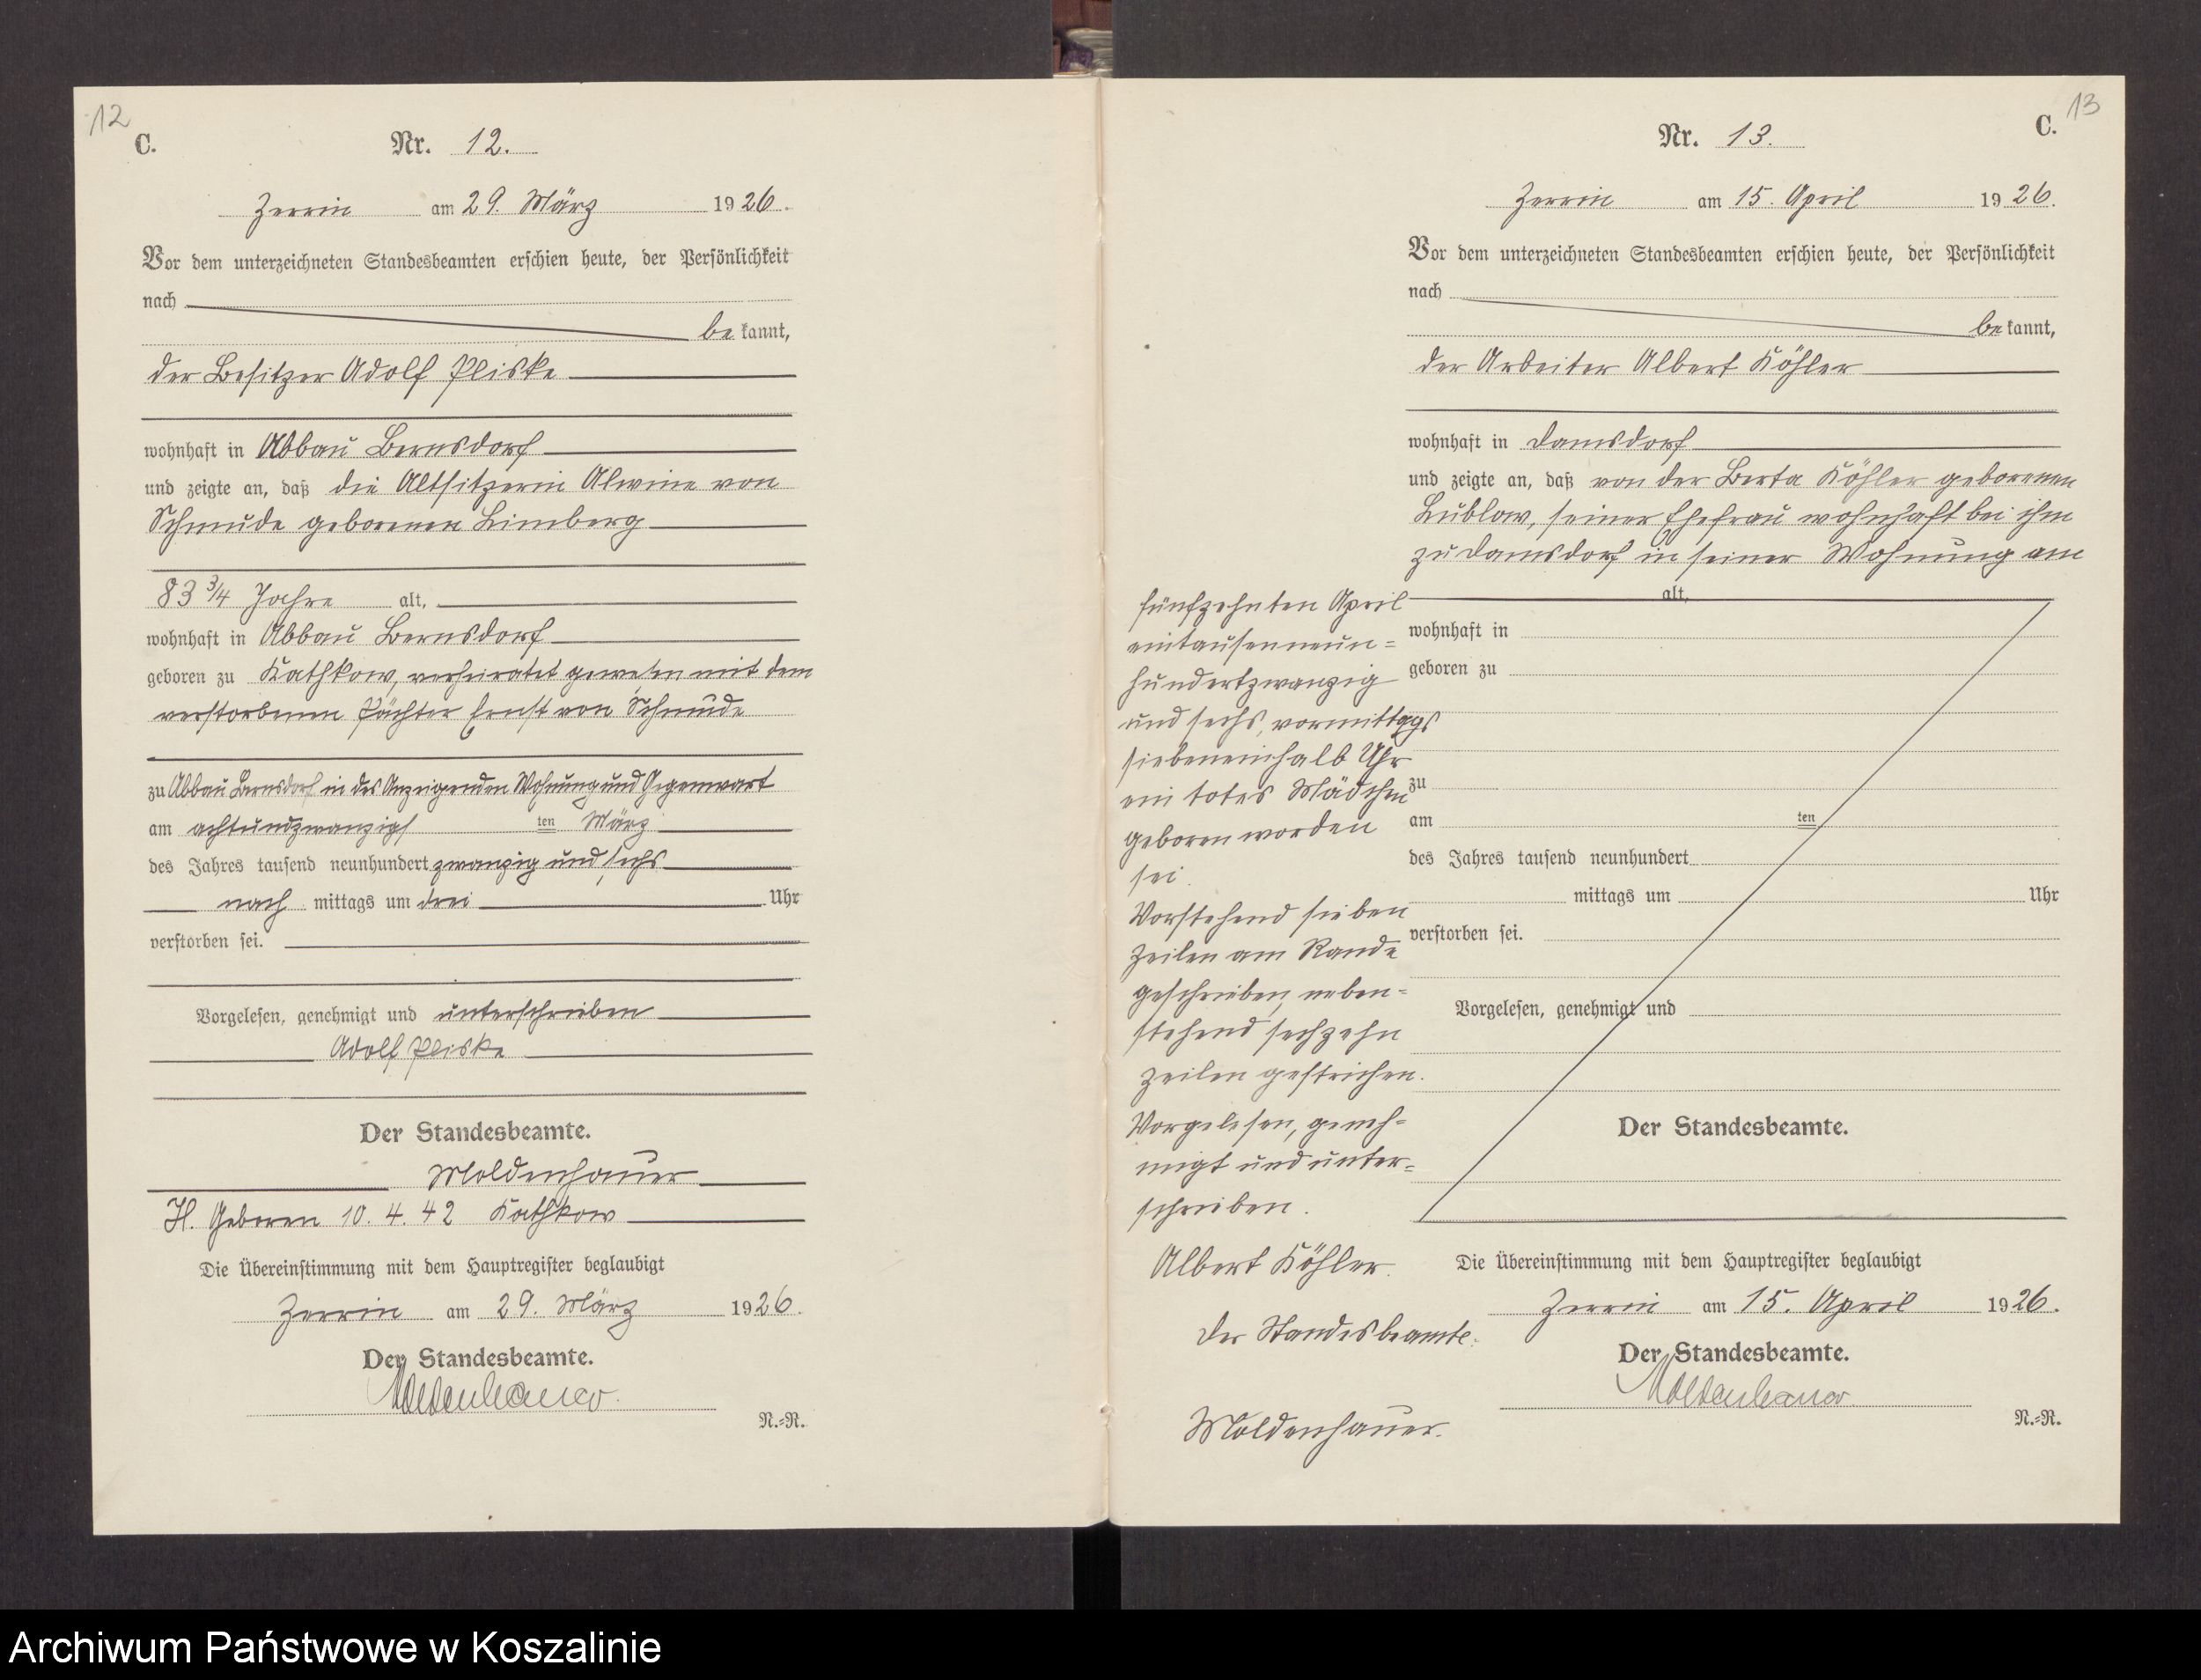 12
C.
Nr. 12.
Zerrin am 29. März 1926.
Vor dem unterzeichneten Standesbeamten erschien heute, der Persönlichkeit
nach
be kannt,
der Besitzer Adolf Pliske
wohnhaft in Abbau Bernsdorf
und zeigte an, daß die Altsitzerin Alwine von
Schmude geborenen Limberg
83 3/4 Jahre alt,
wohnhaft in Abbau Bernsdorf
geboren zu Kathkow, verheiratet gewesen mit dem
verstorbenen Pächter Ernst von Schmude
zu Abbau Bernsdorf in des Anzeigenden Wohnung und Gegenwart
am achtundzwanzigs ten März
des Jahres tausend neunhundert zwanzig und sechs
nach mittags um drei Uhr
verstorben sei.
Vorgelesen, genehmigt und unterschrieben
Adolf Pliske
Der Standesbeamte.
Moldenhauer
H. Geboren 10. 4. 42 Kathkow
Die Übereinstimmung mit dem Hauptregister beglaubigt
Zerrin am 29. März 1926.
Der Standesbeamte.
Moldenhauer.
N.=R.
13
C.
Nr. 13.
Zerrin am 15. April 1926.
Vor dem unterzeichneten Standesbeamten erschien heute, der Persönlichkeit
nach
be kannt,
der Arbeiter Albert Köhler
wohnhaft in Damsdorf
und zeigte an, daß von der Berta Köhler geborenen
Lublow, seiner Ehefrau wohnhaft bei ihm
zu Damsdorf in seiner Wohnung am
fünfzehnten April
eintausenneun=
hundertzwanzig
und sechs, vormittags
siebeneinhalb Uhr
ein totes Mädchen
geboren worden
sei.
Vorstehend sieben
Zeilen am Rande
geschrieben, neben=
stehend sechzehn
Zeilen gestrichen.
Vorgelesen, geneh=
migt und unter=
schrieben.
Albert Köhler.
Der Standesbeamte.
Moldenhauer.
alt,
wohnhaft in
geboren zu
zu
am ten
des Jahres tausend neunhundert
mittags um Uhr
verstorben sei.
Vorgelesen, genehmigt und
Der Standesbeamte.
Die Übereinstimmung mit dem Hauptregister beglaubigt
Zerrin am 15. April 1926.
Der Standesbeamte.
Moldenhauer
N.=R.
Archiwum Państwowe w Koszalinie